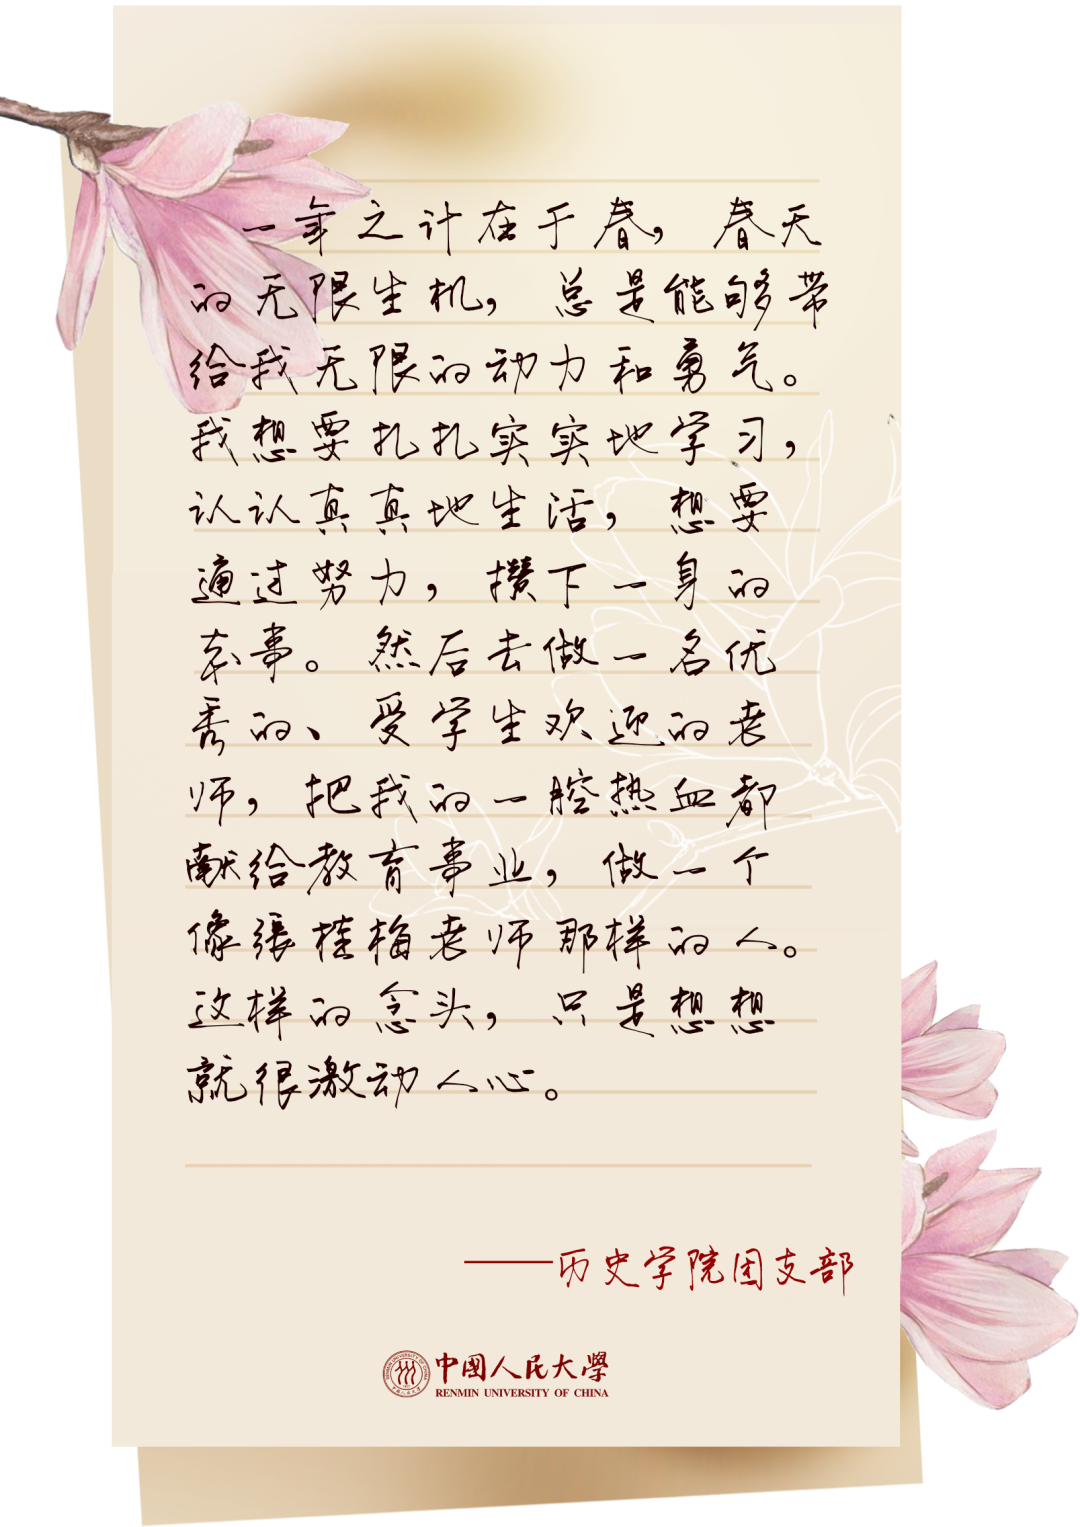 一年之计在于春，春天
的无限生机，总是能够带
给我无限的动力和勇气。
我想要扎扎实实地学习，
认认真真地生活，想要
通过努力，攒下一身的
本事。然后去做一名优
秀的、受学生欢迎的老
师，把我的一腔热血都
献给教育事业，做一个
像張桂梅老师那样的人。
这样的念头，只是想想
就很激动人心。
——历史学院团支部
中國人民大學
RENMIN UNIVERSITY OF CHINA